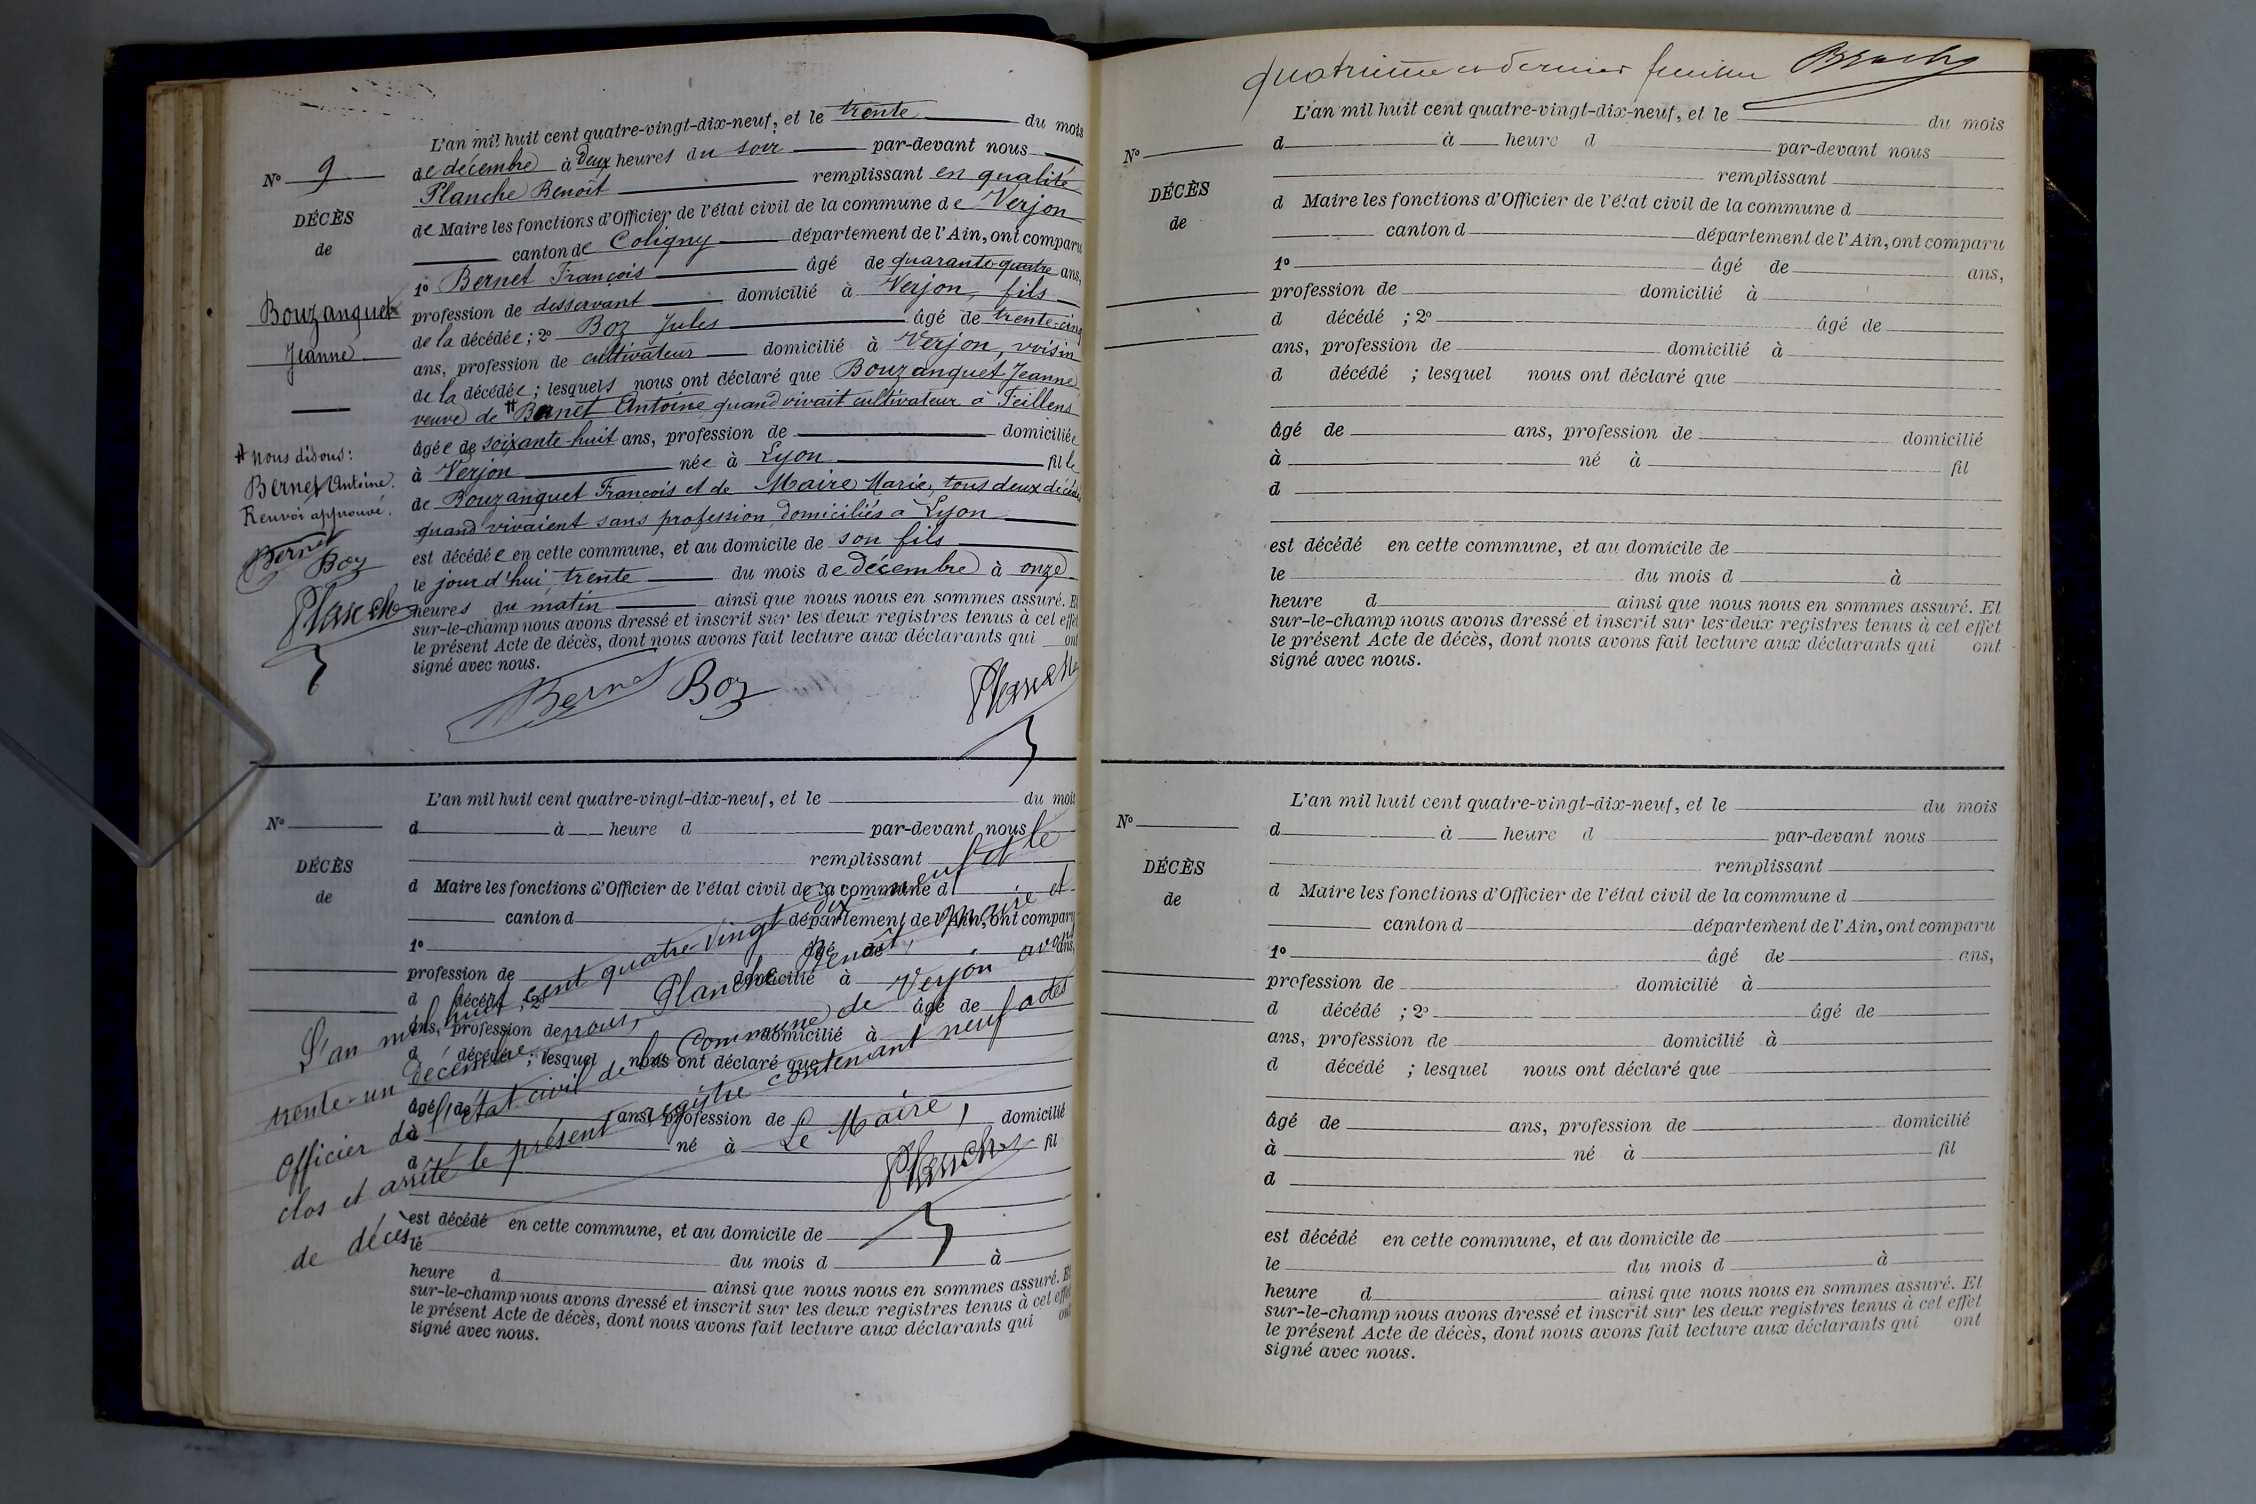 L'an mil huit cent quatre-vingt-dix-neuf, et le trente du mois
de décembre à deux heures du soir par-devant nous
Planche Benoît remplissant en qualité
de Maire les fonctions d'Officier de l'état civil de la commune de Verjon
canton de Coligny département de l'Ain, ont comparu
1º Bernet François âgé de quarante-quatre ans,
profession de desservant domicilié à Verjon, fils
de la décédée ; 2º Boz Jules âgé de trente-cinq
ans, profession de cultivateur domicilié à Verjon, voisin
de la décédée ; lesquels nous ont déclaré que Bouzanquet Jeanne
veuve de # Bernet Antoine quand vivait cultivateur à Feillens
âgée de soixante-huit ans, profession de domiciliée
à Verjon née à Lyon fille
de Bouzanquet François et de Maire Marie, tous deux décédés
quand vivaient sans profession domiciliés à Lyon
est décédée en cette commune, et au domicile de son fils
le jourd'hui trente du mois de décembre à onze
heures du matin ainsi que nous nous en sommes assuré. Et
sur-le-champ nous avons dressé et inscrit sur les deux registres tenus à cet effet
le présent Acte de décès, dont nous avons fait lecture aux déclarants qui ont
signé avec nous.
Bernet Boz Planche
Nº 9
DÉCÈS
de
Bouzanquet
Jeanne
# Nous disons :
Bernet Antoine.
Renvoi approuvé.
Bernet
Boz
Planche
L'an mil huit cent quatre-vingt-dix-neuf, et le du mois
Nº
d à heure d par-devant nous
remplissant
DÉCÈS
de
d Maire les fonctions d'Officier de l'état civil de la commune d
canton d département de l'Ain, ont comparu
1º âgé de ans,
profession de domicilié à
d décédé ; 2º âgé de
ans, profession de domicilié à
d décédé ; lesquel nous ont déclaré que
âgé de ans, profession de domicilié
à né à fil
d
est décédé en cette commune, et au domicile de
le du mois d à
heure d ainsi que nous nous en sommes assuré. Et
sur-le-champ nous avons dressé et inscrit sur les deux registres tenus à cet effet
le présent Acte de décès, dont nous avons fait lecture aux déclarants qui ont
signé avec nous.
L'an mil huit cent quatre-vingt dix-neuf et le
trente-un décembre nous, Planche Benoît, maire et
officier de l'état civil de la commune de Verjon avons
clos et arrêté le présent registre contenant neuf actes
de décès
Le Maire,
Planche
quatrième et dernier feuillet
L'an mil huit cent quatre-vingt-dix-neuf, et le du mois
Nº
d à heure d par-devant nous
remplissant
DÉCÈS
de
d Maire les fonctions d'Officier de l'état civil de la commune d
canton d département de l'Ain, ont comparu
1º âgé de ans,
profession de domicilié à
d décédé ; 2º âgé de
ans, profession de domicilié à
d décédé ; lesquel nous ont déclaré que
âgé de ans, profession de domicilié
à né à fil
d
est décédé en cette commune, et au domicile de
le du mois d à
heure d ainsi que nous nous en sommes assuré. Et
sur-le-champ nous avons dressé et inscrit sur les deux registres tenus à cet effet
le présent Acte de décès, dont nous avons fait lecture aux déclarants qui ont
signé avec nous.
L'an mil huit cent quatre-vingt-dix-neuf, et le du mois
Nº
d à heure d par-devant nous
remplissant
DÉCÈS
de
d Maire les fonctions d'Officier de l'état civil de la commune d
canton d département de l'Ain, ont comparu
1º âgé de ans,
profession de domicilié à
d décédé ; 2º âgé de
ans, profession de domicilié à
d décédé ; lesquel nous ont déclaré que
âgé de ans, profession de domicilié
à né à fil
d
est décédé en cette commune, et au domicile de
le du mois d à
heure d ainsi que nous nous en sommes assuré. Et
sur-le-champ nous avons dressé et inscrit sur les deux registres tenus à cet effet
le présent Acte de décès, dont nous avons fait lecture aux déclarants qui ont
signé avec nous.